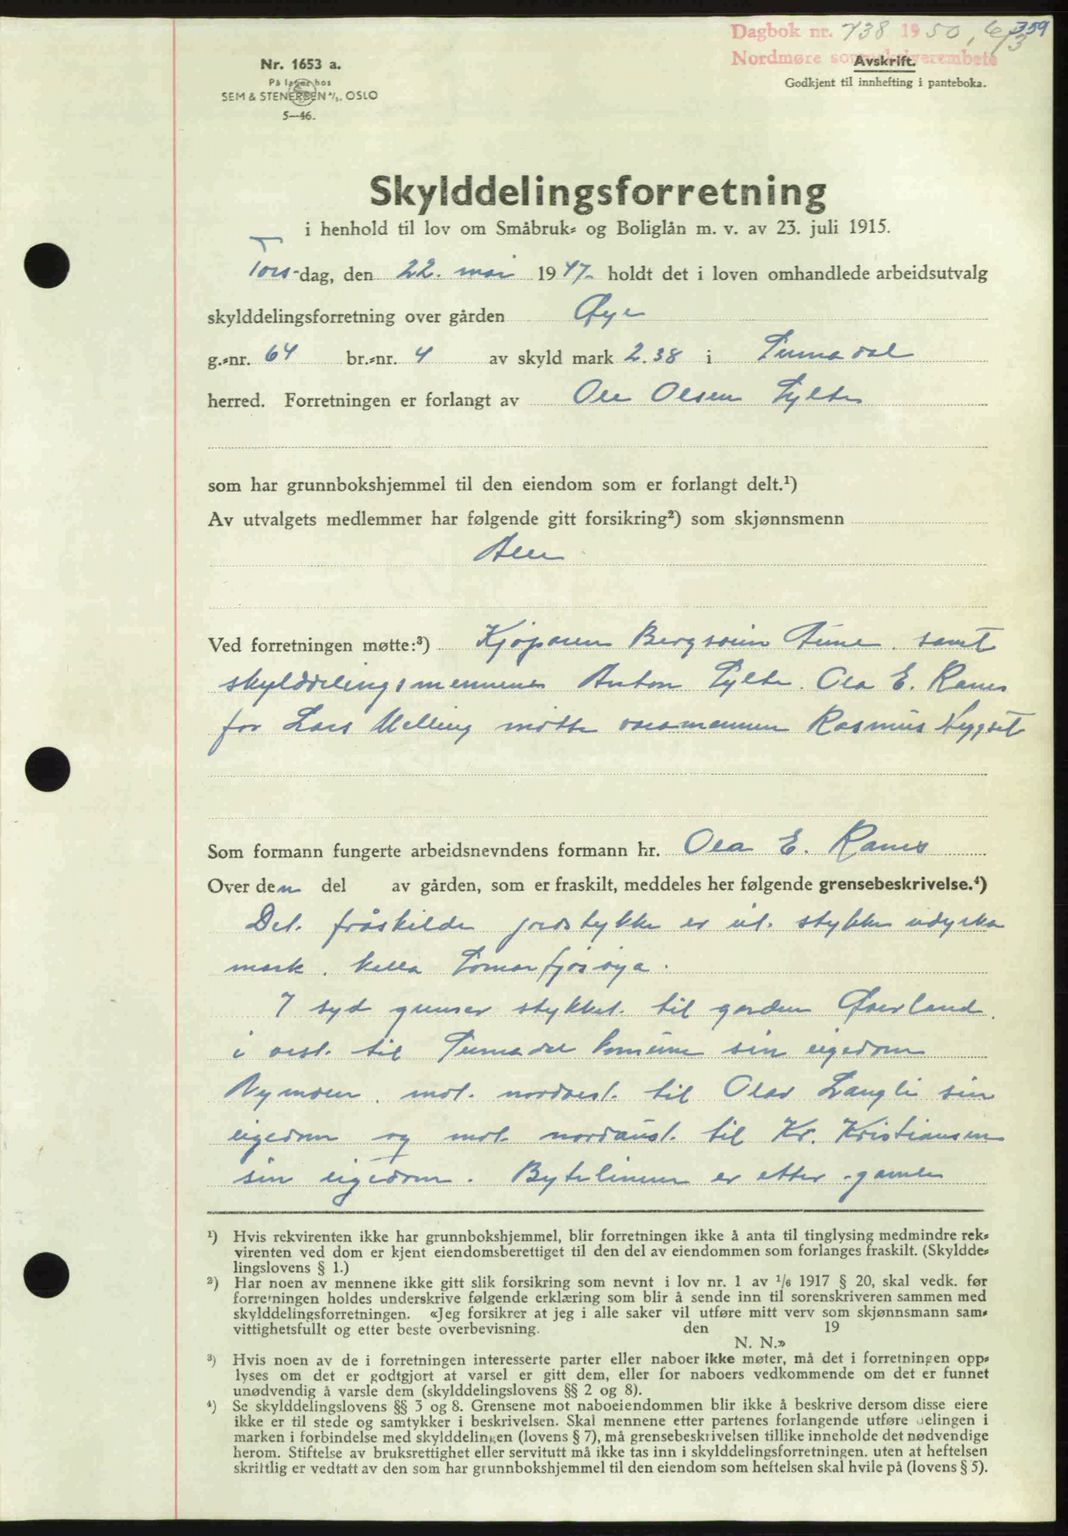 Dagbok nr. 738 1950, 6/3 359
Nordmøre sorenskriverembete
Nr. 1653 a.
Avskrift.
På lager hos
Godkjent til innhefting i panteboka.
SEM & STENERSEN A/S, OSLO
5—46.
Skylddelingsforretning
i henhold til lov om Småbruk- og Boliglån m. v. av 23. juli 1915.
Tors-dag, den 22. mai 1947 holdt det i loven omhandlede arbeidsutvalg
skylddelingsforretning over gården Øye
g.-nr. 64 br.-nr. 4 av skyld mark 2.38 i Surnadal
herred. Forretningen er forlangt av Ole Olsen Sylte
som har grunnbokshjemmel til den eiendom som er forlangt delt.¹)
Av utvalgets medlemmer har følgende gitt forsikring²) som skjønnsmenn
Alle
Ved forretningen møtte:³) Kjøparen Bergsvein Aune. samt
skylddelingsmennene Anton Sylte. Ola E. Ranes
for Lars Melling møtte varamannen Rasmus Nygset
Som formann fungerte arbeidsnevndens formann hr. Ola E. Ranes
Over den del av gården, som er fraskilt, meddeles her følgende grensebeskrivelse.⁴)
Det fråskilde jordstykke er eit stykke udyrka
mark. kalla
I syd grenser stykket til garden Øverland.
i vest til Surnadal komune sin eigedom
Nymoen. mot nordvest til Olav Langli sin
eigedom og mot nordaust til Kr. Kristiansen
sin eigedom. Bytelinene er etter gamle
¹) Hvis rekvirenten ikke har grunnbokshjemmel, blir forretningen ikke å anta til tinglysing medmindre rek-
virenten ved dom er kjent eiendomsberettiget til den del av eiendommen som forlanges fraskilt. (Skyldde-
lingslovens § 1.)
²) Har noen av mennene ikke gitt slik forsikring som nevnt i lov nr. 1 av 1/6 1917 § 20, skal vedk. før
forretningen holdes underskrive følgende erklæring som blir å sende inn til sorenskriveren sammen med
skylddelingsforretningen. «Jeg forsikrer at jeg i alle saker vil utføre mitt verv som skjønnsmann sam-
vittighetsfullt og etter beste overbevisning. den 19
N. N.»
³) Hvis noen av de i forretningen interesserte parter eller naboer ikke møter, må det i forretningen opp-
lyses om det er godtgjort at varsel er gitt dem, eller for naboers vedkommende om det er funnet
unødvendig å varsle dem (skylddelingslovens §§ 2 og 8).
⁴) Se skylddelingslovens §§ 3 og 8. Grensene mot naboeiendommen blir ikke å beskrive dersom disse eiere
ikke er til stede og samtykker i beskrivelsen. Skal mennene etter partenes forlangende utføre delingen i
marken i forbindelse med skylddelingen (lovens § 7), må grensebeskrivelsen tillike inneholde det nødvendige
herom. Stiftelse av bruksrettighet eller servitutt må ikke tas inn i skylddelingsforretningen. uten at heftelsen
skriftlig er vedtatt av den som har grunnbokshjemmel til den eiendom som heftelsen skal hvile på (lovens § 5).